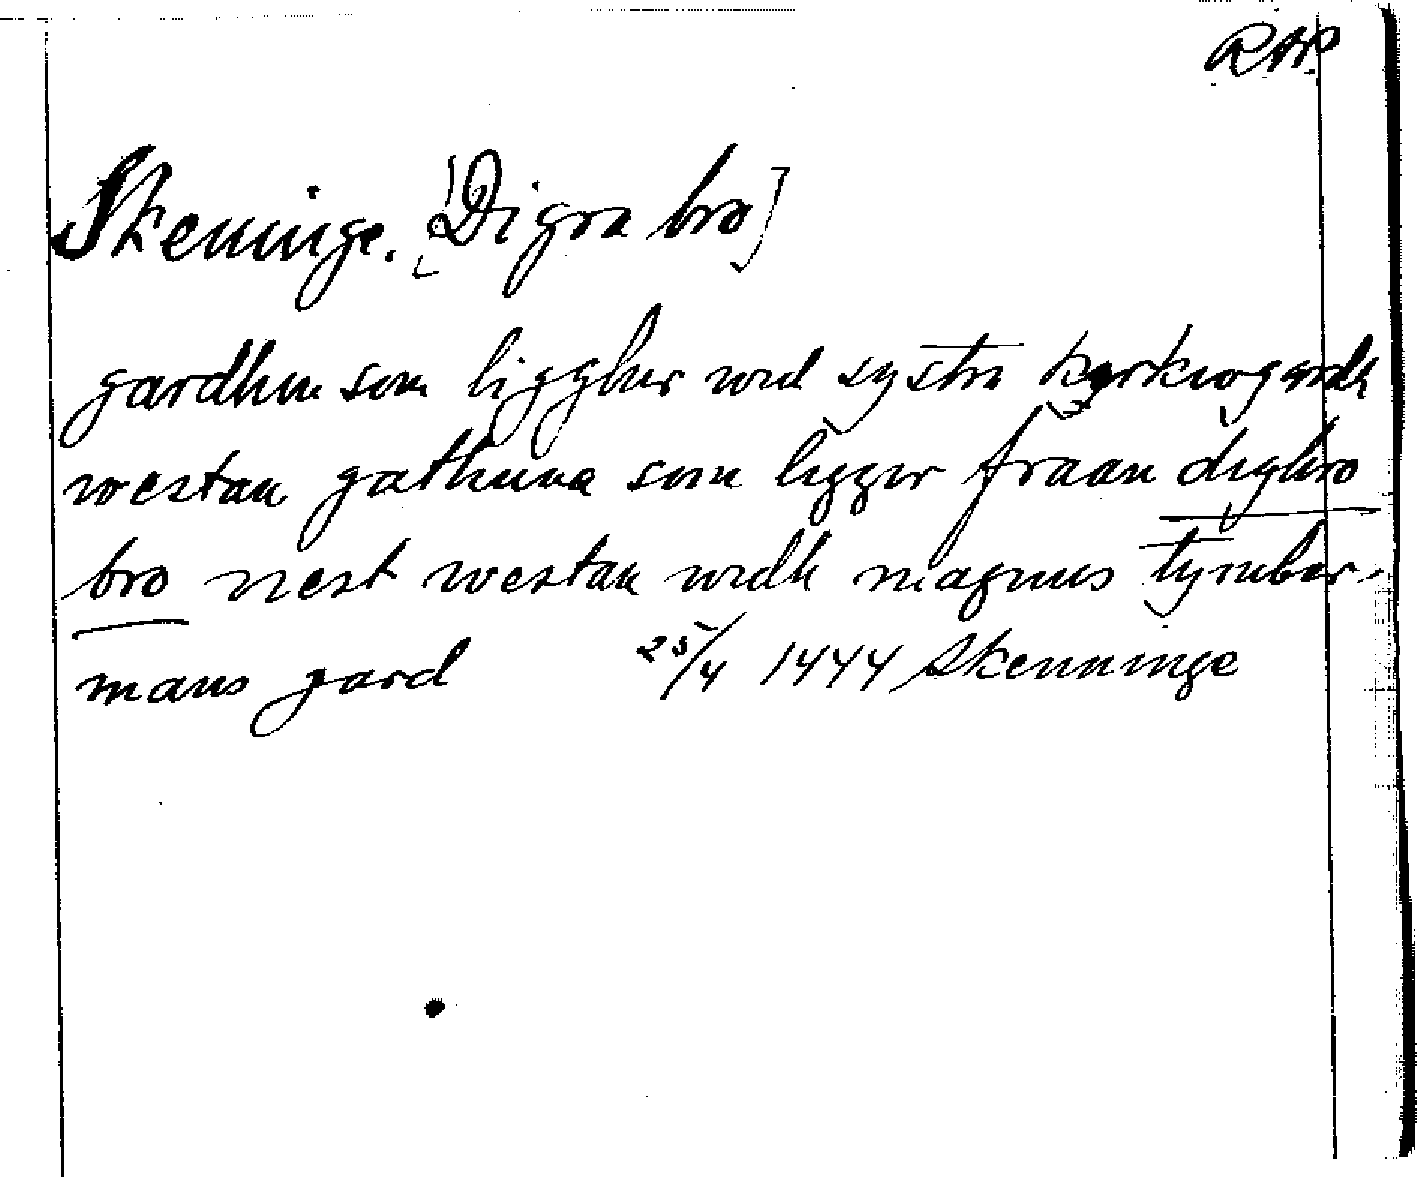 RAP
Skeninge. [Digra bro]
gardhin som ligghur wid systra kyrkiogardh
westan gathuna som ligger fraan dighro
bro nest westan widh magnus tymber-
mans gard 25/4 1444 Skenninge